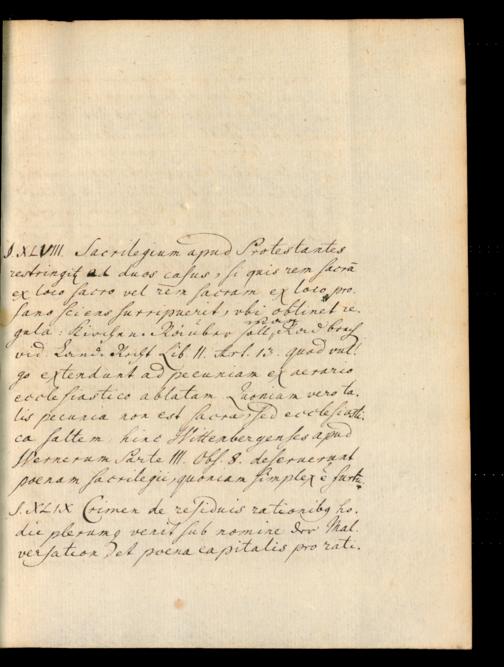 §. XLVIII. Sacrilegium apud Protestantes
restringit ad duos casus, si quis rem sacrã
ex loco sacro vel rem sacram ex loco pro-
fano sciens surripuerit, ubi obtinet re-
gula: Kirchen-Räuber soll man
vid. Land-Recht Lib II. Art. 13. quod vul-
go extendunt ad pecuniam ex aerario
ecclesiastico ablatam. Quoniam vero ta-
lis pecunia non est sacra, sed ecclesiasti-
ca saltem hinc Wittenbergenses apud
Wernerum Parte III. Obs. 8. deserverunt
poenam sacrilegii, quoniam simplex ẽ furtũ.
§. XLIX Crimen de residuis rationibq ho-
die plerumq venit sub nomine der Mal-
versation et poena capitalis pro rati-